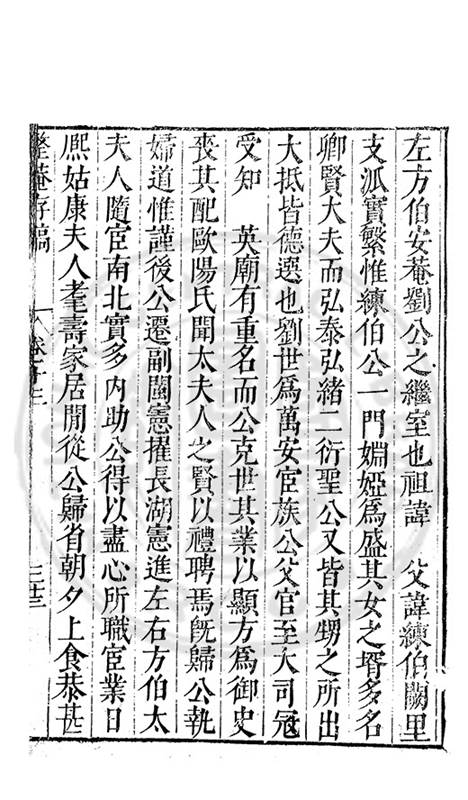 左方伯安菴劉公之繼室也祖諱　父諱練伯闕里
支派實繁惟練伯公一門婣婭爲盛其女之壻多名
卿賢大夫而弘泰弘緒二衍聖公又皆其甥之所出
大抵皆德選也劉世爲萬安宦族公父官至大司冦
受知　英廟有重名而公克世其業以顯方爲御史
喪其配歐陽氏聞太夫人之賢以禮聘焉旣歸公執
婦道惟謹後公遷副閩憲擢長湖憲進左右方伯太
夫人隨宦南北實多内助公得以盡心所職宦業日
熈姑康夫人耄壽家居閒從公歸省朝夕上食恭甚
整菴存稿　卷十三